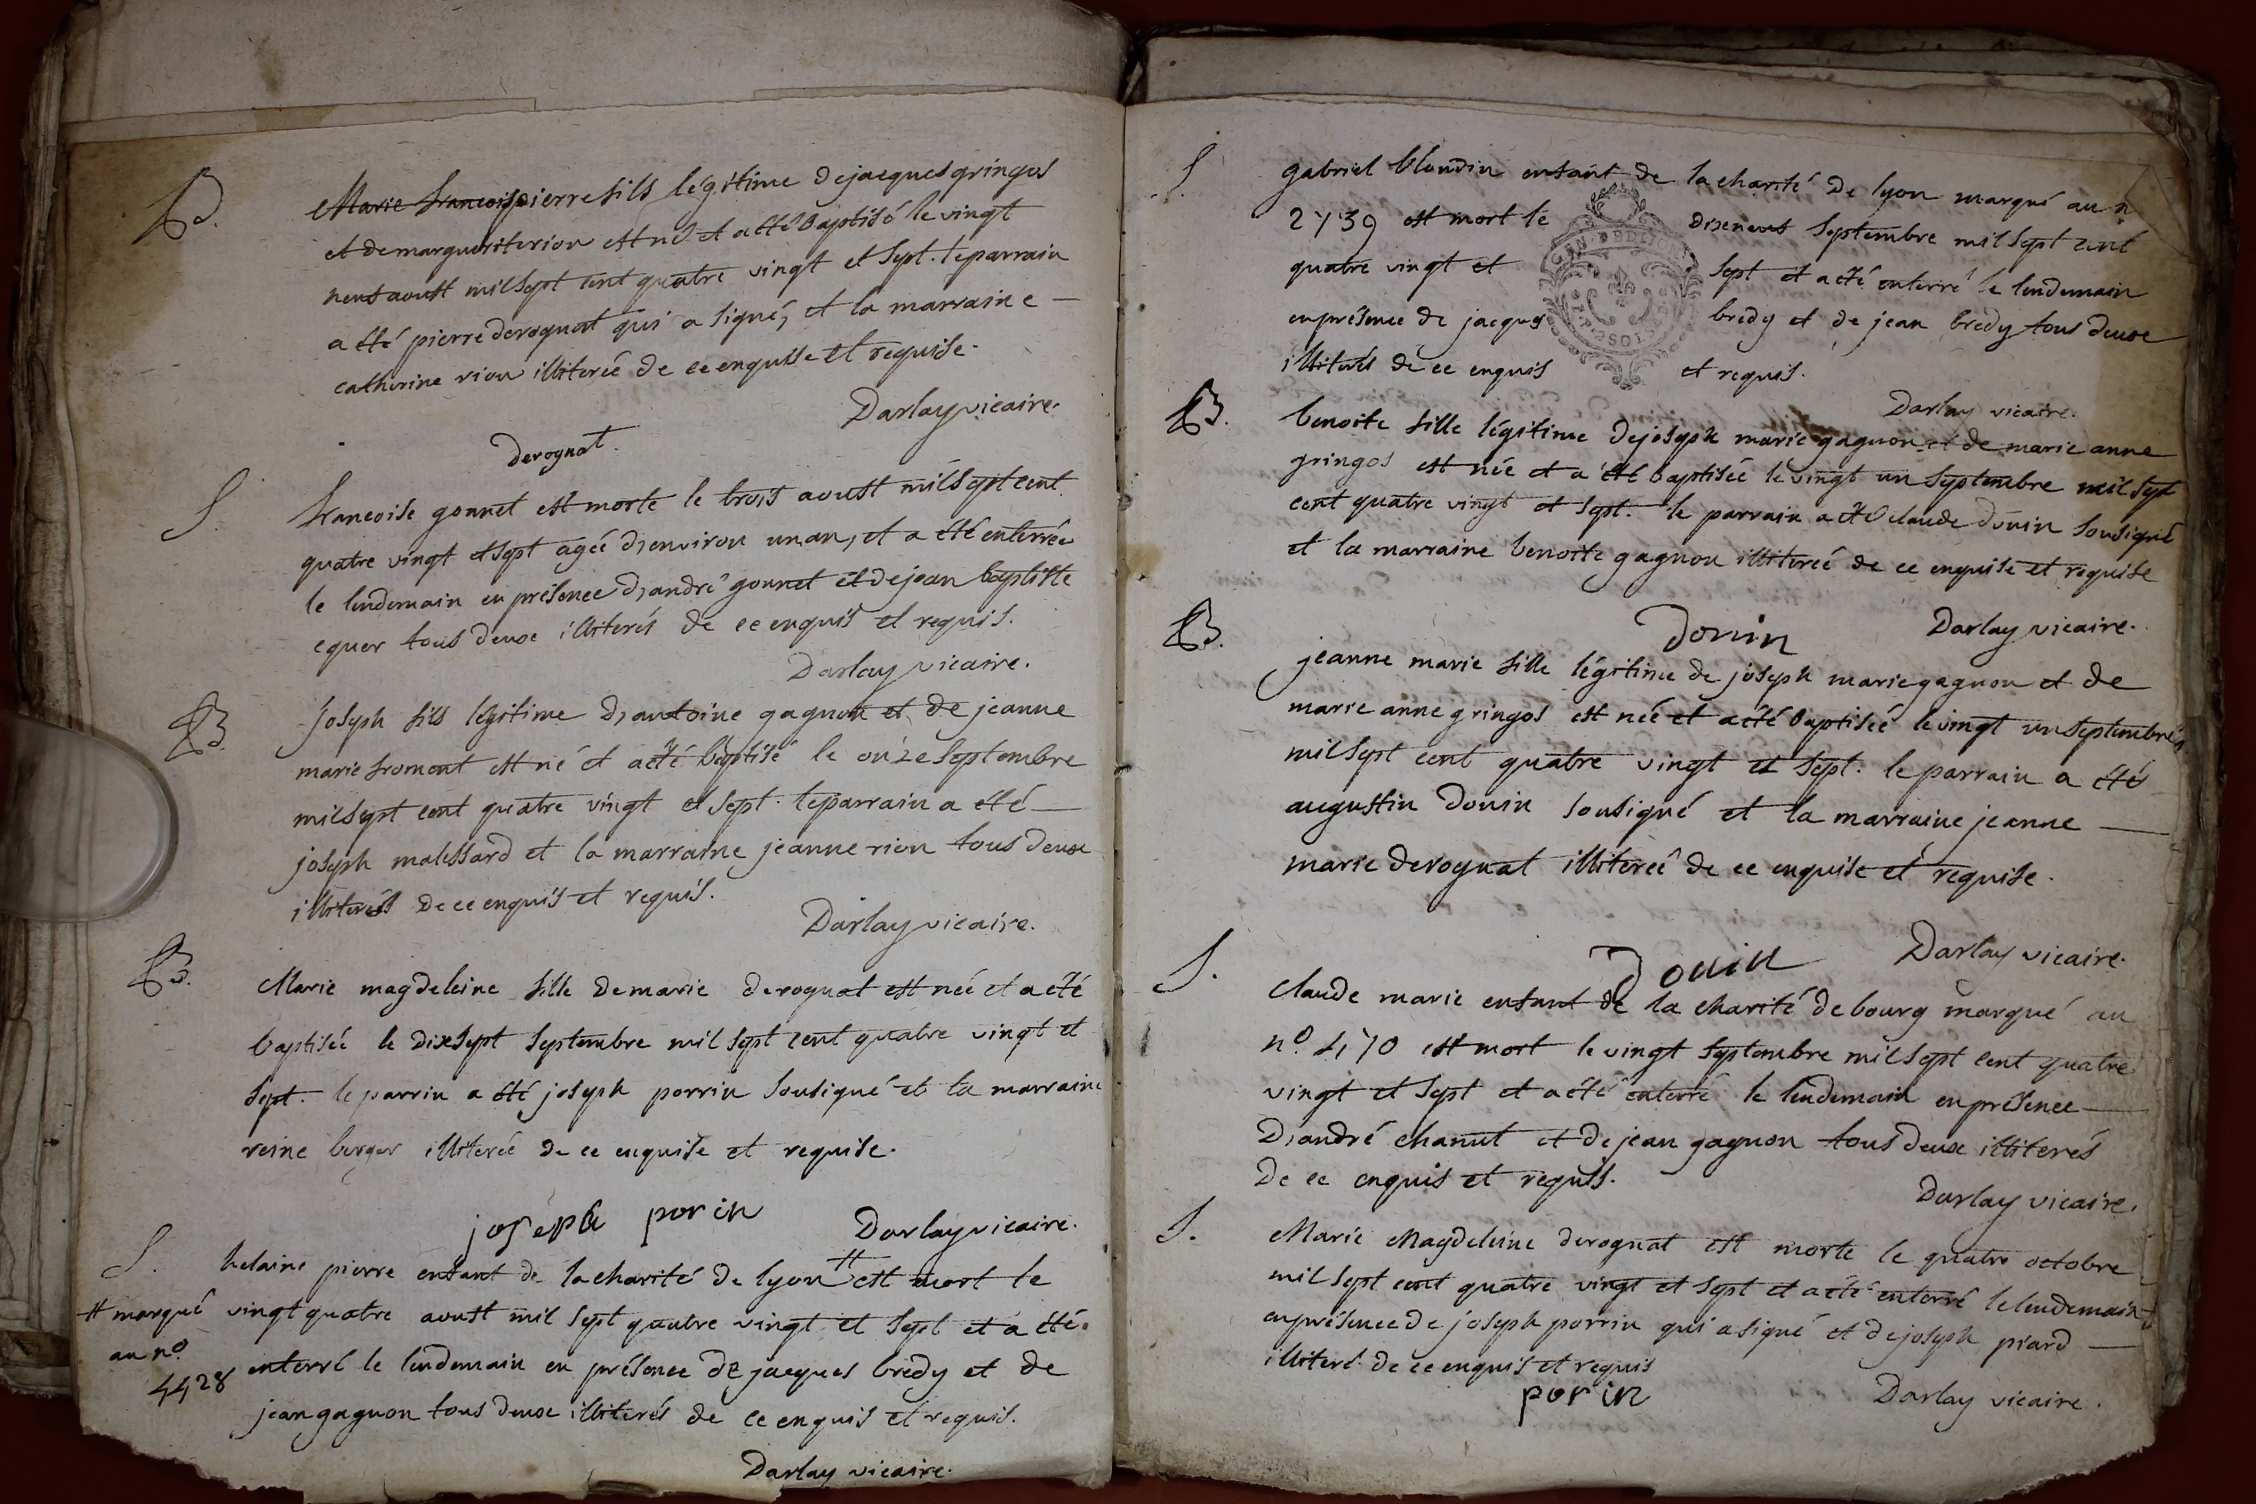 B.
Marie francoise pierre fils légitime de jacques gringos
et de marguerite riou est né et a été baptisé le vingt
neuf aoust mil sept cent quatre vingt et sept. le parrain
a été pierre derognat qui a signé, et la marraine —
catherine riou illiterée de ce enquise et requise.
Darlay vicaire.
derognat.
S.
francoise gonnet est morte le trois aoust mil sept cent
quatre vingt et sept agée d'environ un an, et a été enterrée
le lendemain en présence d'andré gonnet et de jean baptiste
equer tous deux illiterés de ce enquis et requis.
Darlay vicaire.
B.
joseph fils légitime d'antoine gagnon et de jeanne
marie froment est né et a été baptisé le onze septembre
mil sept cent quatre vingt et sept. le parrain a été —
joseph malessard et la marraine jeanne riou tous deux
illiterés de ce enquis et requis.
Darlay vicaire.
B.
Marie magdeleine fille de marie derognat est née et a été
baptisée le dix sept septembre mil sept cent quatre vingt et
sept. le parrin a été joseph porrin sousigné et la marraine
reine berger illiterée de ce enquise et requise.
joseph porin
Darlay vicaire.
S.
helaine pierre enfant de la charité de lyon # est mort le
# marqué
vingt quatre aoust mil sept quatre vingt et sept et a été
au n.º
4428
enterré le lendemain en présence de jacques bredy et de
jean gagnon tous deux illiterés de ce enquis et requis.
Darlay vicaire.
S
gabriel blondin enfant de la charité de lyon marqué au n.
2739 est mort le dixneuf septembre mil sept cent
quatre vingt et sept et a été enterré le lendemain
en présence de jacques bredy et de jean bredy tous deux
illiterés de ce enquis et requis.
GEN. DE LION
Darlay vicaire.
B.
benoite fille légitime de joseph marie gagnon et de marie anne
gringos est née et a été baptisée le vingt un septembre mil sept
cent quatre vingt et sept. le parrain a été claude donin sousigné
et la marraine benoite gagnon illiterée de ce enquise et requise
donin
Darlay vicaire.
B.
jeanne marie fille légitime de joseph marie gagnon et de
marie anne gringos est née et a été baptisée le vingt un septembre
mil sept cent quatre vingt et sept. le parrain a été
augustin donin sousigné et la marraine jeanne —
marie derognat illiterée de ce enquise et requise.
Donin
Darlay vicaire.
S.
claude marie enfant de la charité de bourg marqué au
n.º 470 est mort le vingt septembre mil sept cent quatre
vingt et sept et a été enterré le lendemain en présence —
d'andré chanut et de jean gagnon tous deux illiterés
de ce enquis et requis.
Darlay vicaire.
S.
Marie Magdeleine derognat est morte le quatre octobre
mil sept cent quatre vingt et sept et a été enterré le lendemain
en présence de joseph porrin qui a signé et de joseph piard —
illiteré de ce enquis et requis
porin
Darlay vicaire.